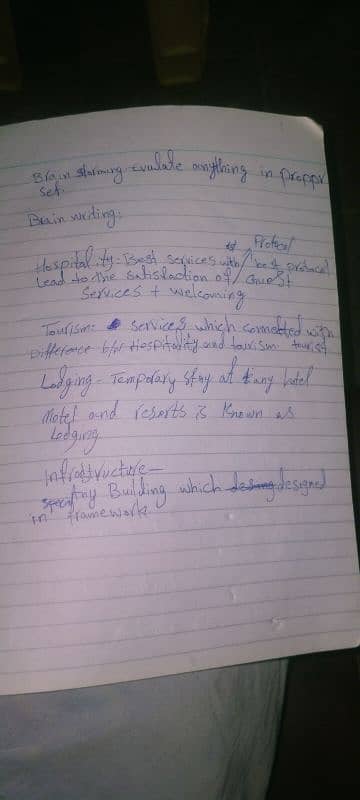 Brain storming evulate anything in proppr
set.
Brain writing:
Protocol
Hospitality- Best services with best protocol
Lead to the satisfaction of Guest
Services + welcoming
Tourism: services which connected with
Difference b/w Hospitality and tourism. tourist
Lodging- Temporary stay at any hotel
Motel and resorts is known as
Lodging
Infrostructure-
Any Building which designed
in framework